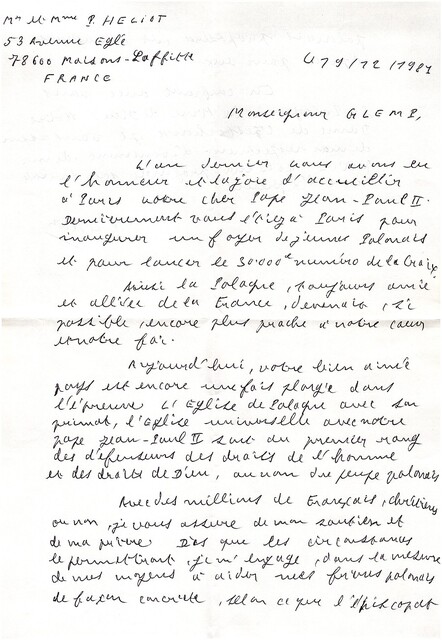 Mr et Mme P. HELIOT
53 Avenue Eglé
78600 Maisons-Laffitte
FRANCE
Le 19/12/1981
Monseigneur GLEMP,
L'an dernier nous avons eu
l'honneur et la joie d'accueillir
à Paris notre cher Pape Jean-Paul II.
Dernièrement vous étiez à Paris pour
inaugurer un foyer de jeunes Polonais
et pour lancer le 30 000e numéro de la Croix.
Ainsi la Pologne, toujours amie
et alliée de la France, devenait, si
possible, encore plus proche à notre cœur
et notre foi.
Aujourd'hui, votre bien aimé
pays est encore une fois plongé dans
l'épreuve L'Eglise de Pologne avec son
primat, l'Eglise universelle avec notre
pape Jean-Paul II sont au premier rang
des défenseurs des droits de l'homme
et des droits de Dieu, au nom du peuple polonais
Avec des millions de Français, chrétiens
ou non, je vous assure de mon soutien et
de ma prière Dès que les circonstances
le permettront, je m'engage, dans la mesure
de mes moyens à aider mes frères polonais
de façon concrète, selon ce que l'épiscopat